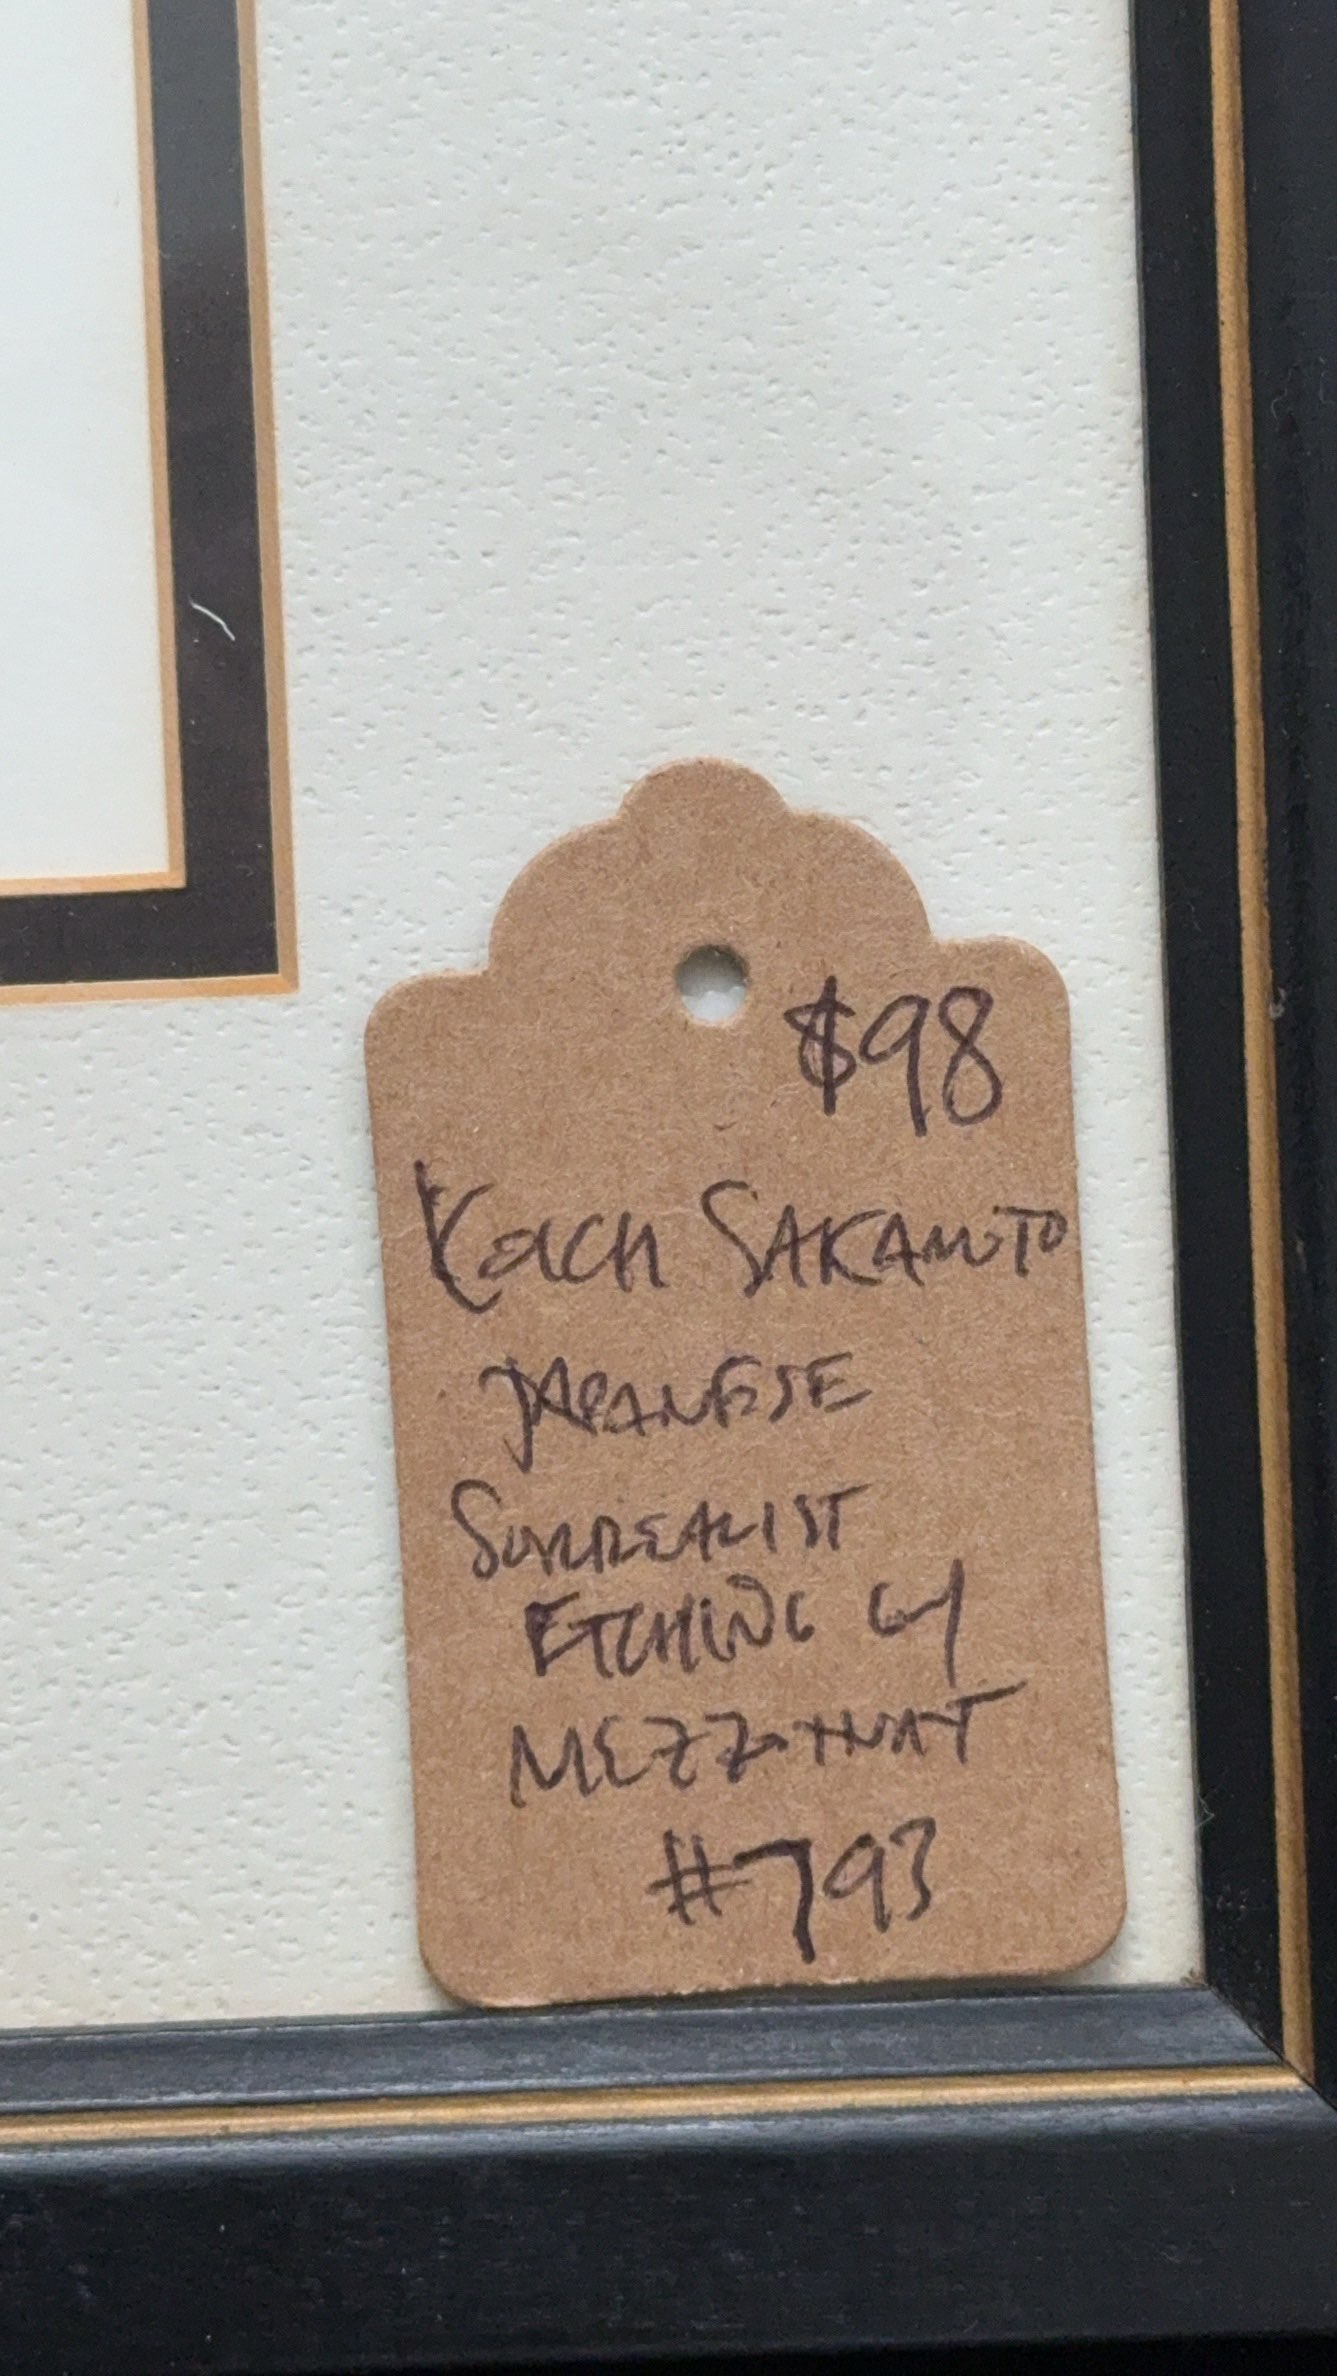 $98
Koich Sakamoto
Japanese
Surrealist
Etching w/
Mezzotint
#793